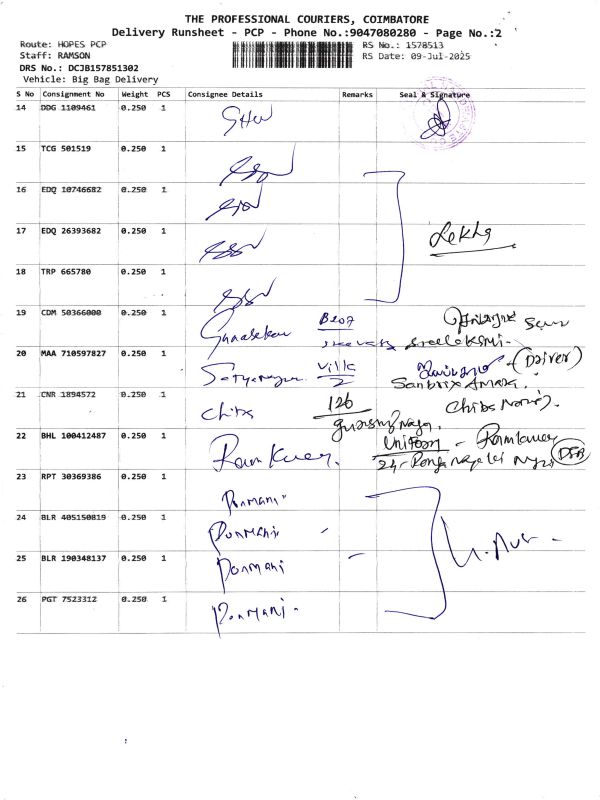 THE PROFESSIONAL COURIERS, COIMBATORE
Delivery Runsheet - PCP - Phone No.:9047080280 - Page No.:2
Route: HOPES PCP
RS No.: 1578513
Staff: RAMSON
RS Date: 09-Jul-2025
DRS No.: DCJB157851302
Vehicle: Big Bag Delivery
S No Consignment No Weight PCS Consignee Details Remarks Seal & Signature
14 DDG 1109461 0.250 1
15 TCG 501519 0.250 1
16 EDQ 10746682 0.250 1
17 EDQ 26393682 0.250 1 Lekha
18 TRP 665780 0.250 1
19 CDM 50366000 0.250 1 Gunasekar
20 MAA 710597827 0.250 1 Villa 2 (Driver)
21 CNR 1894572 0.250 1 Chibs 126
22 BHL 100412487 0.250 1 Ram Kumar Uniform - Ramkumar
24-
23 RPT 30369386 0.250 1 Ponmani
24 BLR 405150819 0.250 1 Ponmani
25 BLR 190348137 0.250 1 Ponmani
26 PGT 7523312 0.250 1 Ponmani